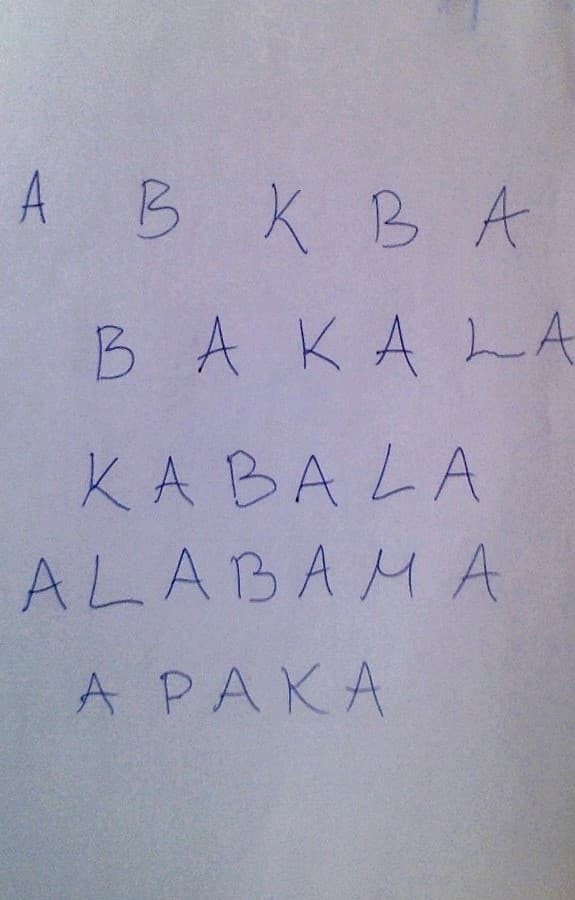 A B K B A
B A K A L A
K A B A L A
A L A B A M A
A P A K A